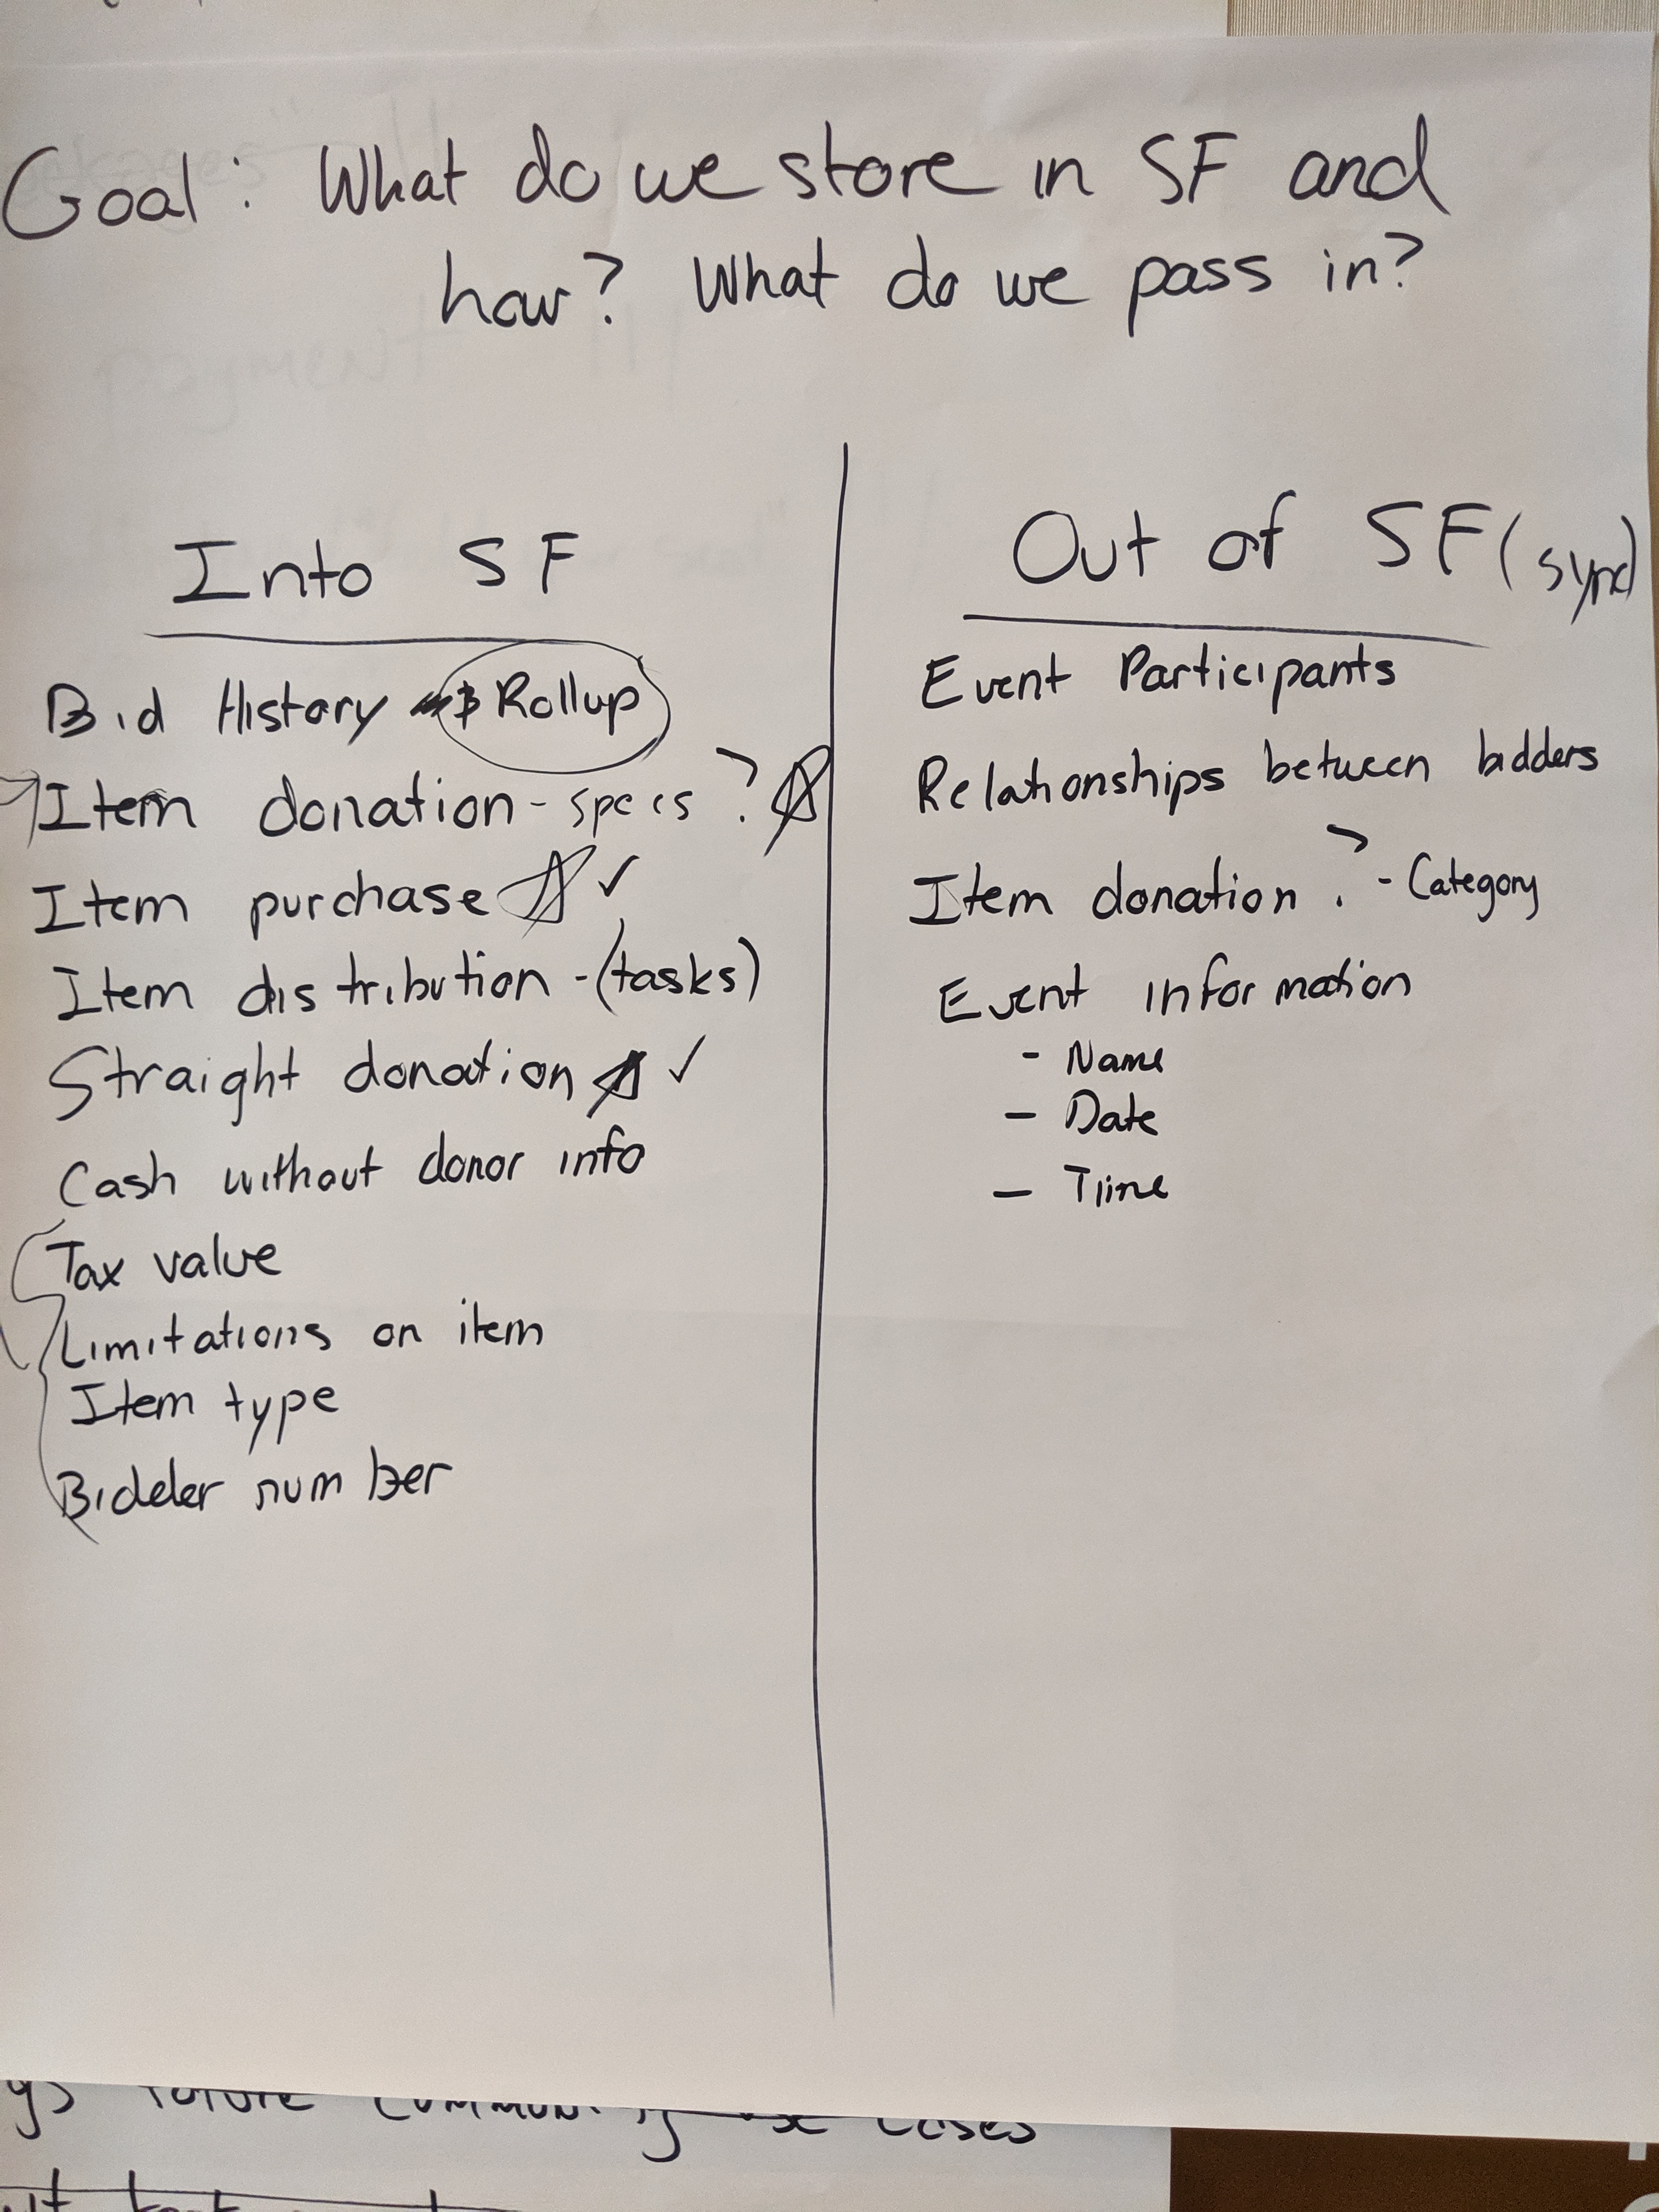 Goal: What do we store in SF and
how? What do we pass in?
Into SF
Bid History $ Rollup
Item donation - specs ?
Item purchase ✓
Item distribution - (tasks)
Straight donation ✓
Cash without donor info
Tax value
Limitations on item
Item type
Bidder number
Out of SF (sync)
Event Participants
Relationships between bidders
Item donation ? - Category
Event information
- Name
- Date
- Time
future community use cases